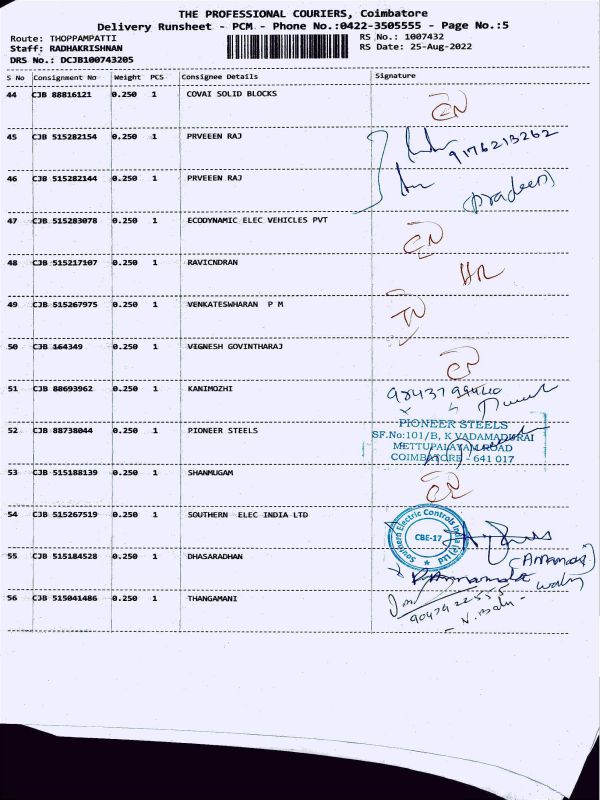 THE PROFESSIONAL COURIERS, Coimbatore
Delivery Runsheet - PCM - Phone No.:0422-3505555 - Page No.:5
Route: THOPPAMPATTI RS No.: 1007432
Staff: RADHAKRISHNAN RS Date: 25-Aug-2022
DRS No.: DCJB100743205
S No Consignment No Weight PCS Consignee Details Signature
44 CJB 88816121 0.250 1 COVAI SOLID BLOCKS
45 CJB 515282154 0.250 1 PRVEEEN RAJ 9176213262
46 CJB 515282144 0.250 1 PRVEEEN RAJ (Pradeep)
47 CJB 515283078 0.250 1 ECODYNAMIC ELEC VEHICLES PVT
48 CJB 515217107 0.250 1 RAVICNDRAN
49 CJB 515267975 0.250 1 VENKATESHWARAN P M
50 CJB 164349 0.250 1 VIGNESH GOVINTHARAJ
51 CJB 88693962 0.250 1 KANIMOZHI
52 CJB 88738044 0.250 1 PIONEER STEELS
PIONEER STEELS
SF.No:101/B, K VADAMADURAI
METTUPALAYAM ROAD
COIMBATORE - 641 017
53 CJB 515188139 0.250 1 SHANMUGAM
54 CJB 515267519 0.250 1 SOUTHERN ELEC INDIA LTD
Southern Electric Controls India (P) Ltd
CBE-17
55 CJB 515184528 0.250 1 DHASARADHAN
56 CJB 515041486 0.250 1 THANGAMANI
9047922555
- N. Balu -